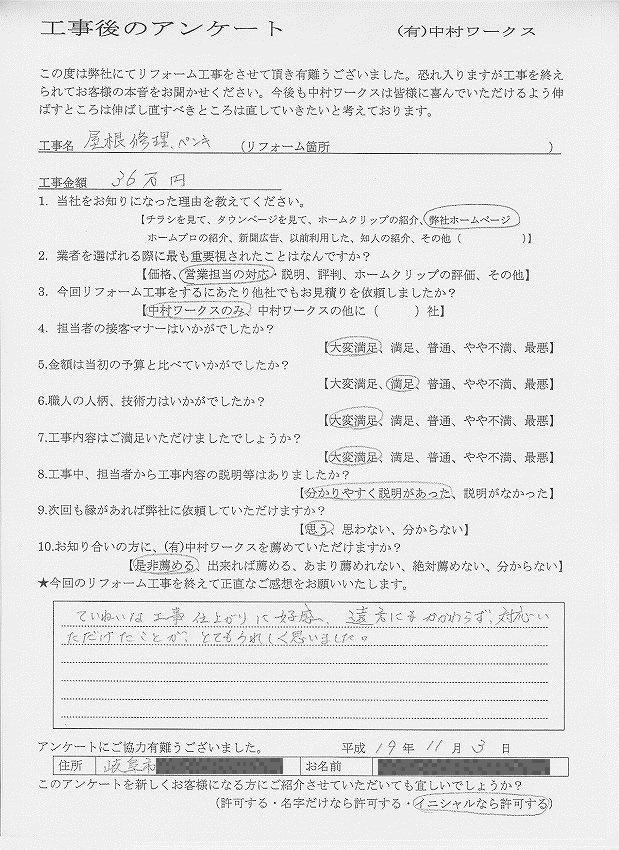 工事後のアンケート (有)中村ワークス
この度は弊社にてリフォーム工事をさせて頂き有難うございました。恐れ入りますが工事を終え
られてお客様の本音をお聞かせください。今後も中村ワークスは皆様に喜んでいただけるよう伸
ばすところは伸ばし直すべきところは直していきたいと考えております。
工事名 屋根修理、ペンキ (リフォーム箇所 )
工事金額 36万円
1. 当社をお知りになった理由を教えてください。
【チラシを見て、タウンページを見て、ホームクリップの紹介、弊社ホームページ
ホームプロの紹介、新聞広告、以前利用した、知人の紹介、その他（ ）】
2. 業者を選ばれる際に最も重要視されたことはなんですか？
【価格、営業担当の対応・説明、評判、ホームクリップの評価、その他】
3. 今回リフォーム工事をするにあたり他社でもお見積りを依頼しましたか？
【中村ワークスのみ、中村ワークスの他に（ ）社】
4. 担当者の接客マナーはいかがでしたか？
【大変満足、満足、普通、やや不満、最悪】
5.金額は当初の予算と比べていかがでしたか？
【大変満足、満足、普通、やや不満、最悪】
6.職人の人柄、技術力はいかがでしたか？
【大変満足、満足、普通、やや不満、最悪】
7.工事内容はご満足いただけましたでしょうか？
【大変満足、満足、普通、やや不満、最悪】
8.工事中、担当者から工事内容の説明等はありましたか？
【分かりやすく説明があった、説明がなかった】
9.次回も縁があれば弊社に依頼していただけますか？
【思う、思わない、分からない】
10.お知り合いの方に、(有)中村ワークスを薦めていただけますか？
【是非薦める、出来れば薦める、あまり薦めれない、絶対薦めない、分からない】
★今回のリフォーム工事を終えて正直なご感想をお願いいたします。
ていねいな工事仕上がりに好感、遠方にもかかわらず、対応い
ただけたことが、とてもうれしく思いました。
アンケートにご協力有難うございました。 平成 19 年 11 月 3 日
住所 岐阜市 お名前
このアンケートを新しくお客様になる方にご紹介させていただいても宜しいでしょうか？
(許可する・名字だけなら許可する・イニシャルなら許可する)